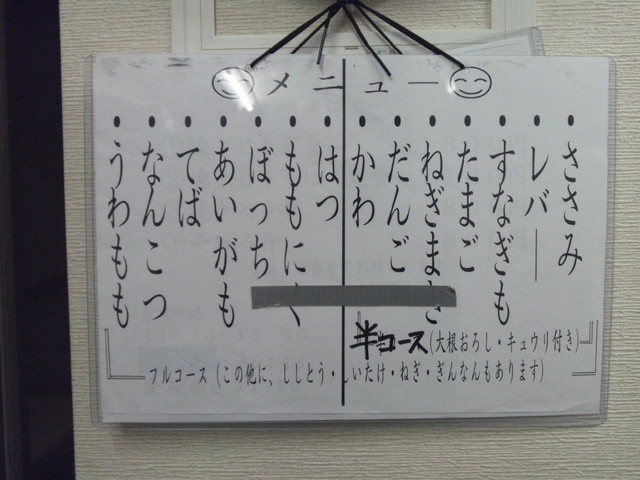 メニュー
・ささみ
・レバー
・すなぎも
・たまご
・ねぎまき
・だんご
・かわ
・はつ
・ももにく
・ぼっち
・あいがも
・てば
・なんこつ
・うわもも
半コース(大根おろし・キュウリ付き)
フルコース(この他に、ししとう・しいたけ・ねぎ・ぎんなんもあります)